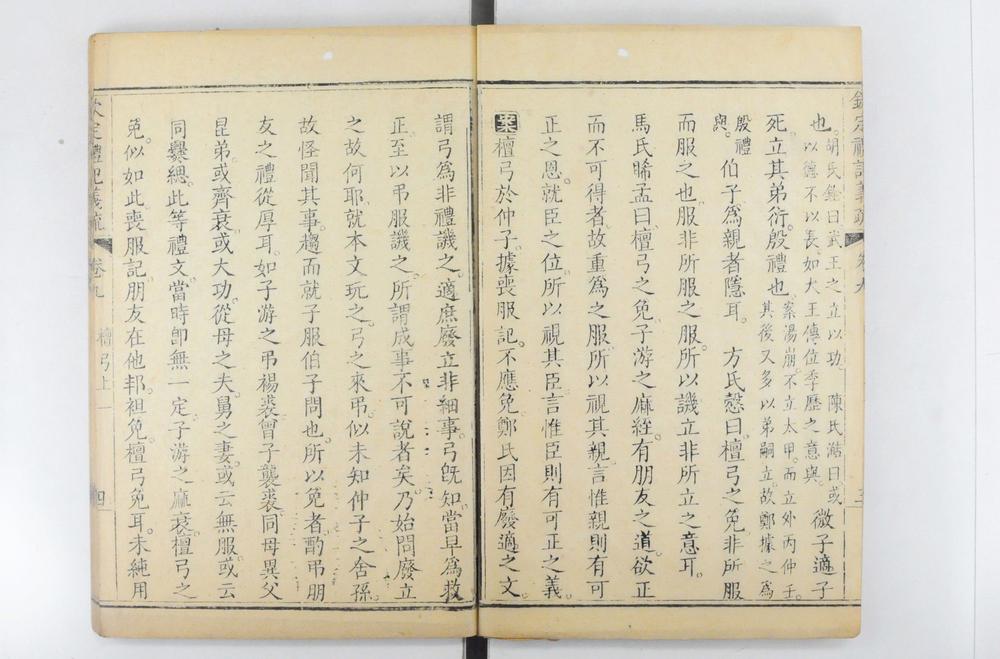 也。胡氏銓曰武王之立以功。陳氏澔曰或以德不以長。如大王傳位季歷之意與。微子適子
死立其弟衍。殷禮也案湯崩。不立太甲。而立外丙仲壬。其後又多以弟嗣立。故鄭據之為
殷禮與。伯子為親者隱耳。 方氏慤曰。檀弓之免。非所服
而服之也。服非所服之服。所以譏立非所立之意耳。
馬氏晞孟曰。檀弓之免。子游之麻絰。有朋友之道。欲正
而不可得者。故重為之服。所以視其親。言惟親則有可
正之恩。就臣之位。所以視其臣。言惟臣則有可正之義。
案檀弓於仲子。據喪服記。不應免。鄭氏因有廢適之文。
謂弓為非禮譏之。適庶廢立非細事。弓旣知當早為救
正。至以弔服譏之。所謂成事不可說者矣。乃始問廢立
之故何耶。就本文玩之。弓之來弔。似未知仲子之舍孫。
故怪聞其事。趨而就子服伯子問也。所以免者。酌弔朋
友之禮從厚耳。如子游之弔裼裘。曾子襲裘。同母異父
昆弟。或齊衰。或大功。從母之夫。舅之妻。或云無服。或云
同爨緦。此等禮文。當時卽無一定。子游之麻衰。檀弓之
免。似如此。喪服記朋友在他邦。袒免。檀弓免耳。未純用
欽定禮記義疏 卷九 檀弓上一 四